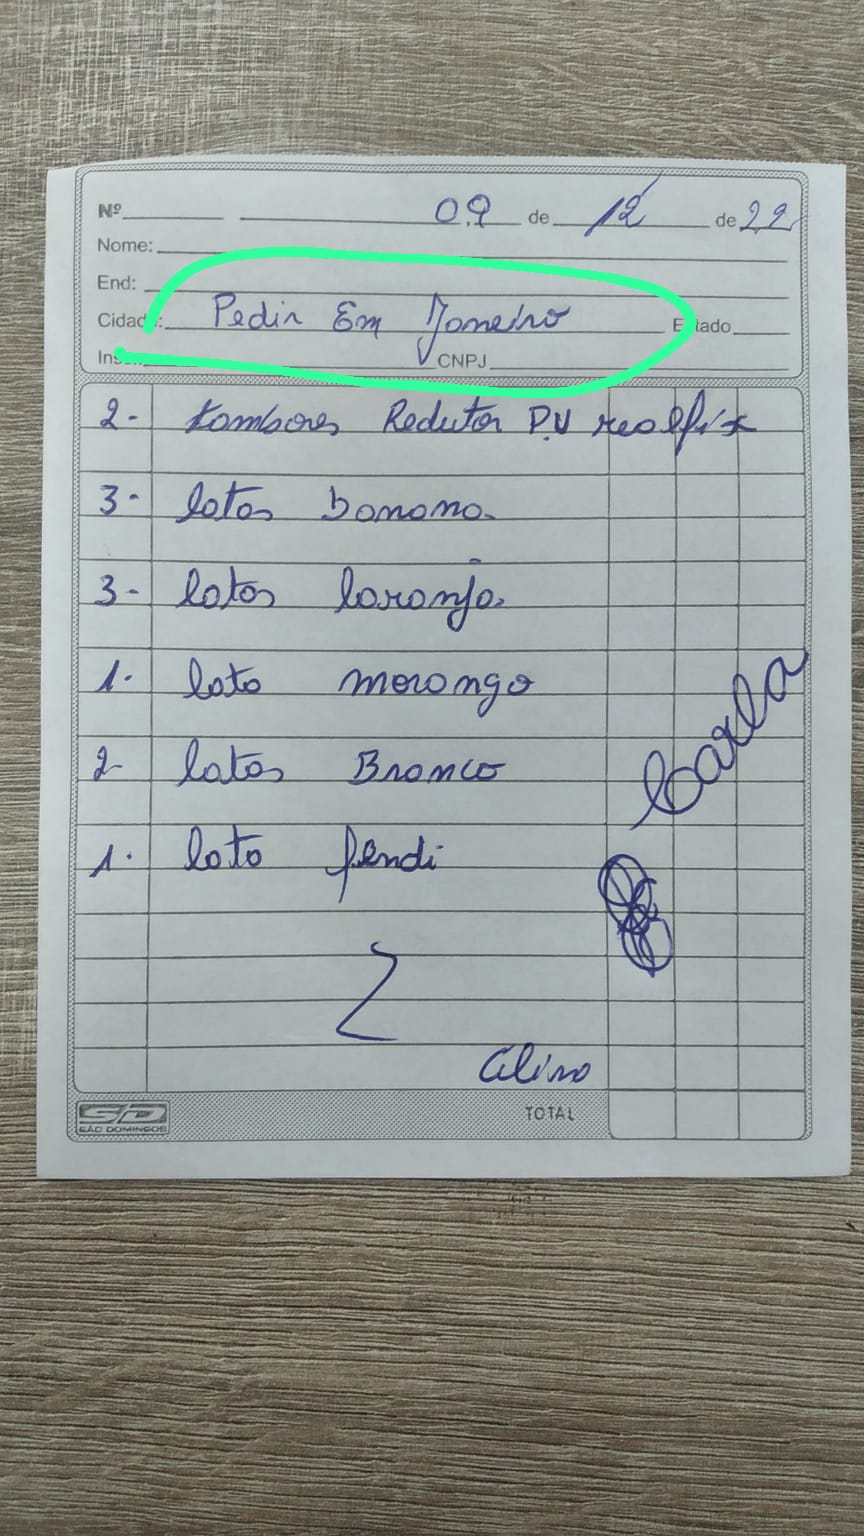 Nº 09 de 12 de 22
Nome:
End:
Cidade: Pedir Em Janeiro Estado
Inscr. CNPJ
2- tambores Redutor P.U realfix
3- latas banana.
3- latas laranja.
1. lata morango
2 latas Branco
1. lata fendi
Carla
TOTAL
SD
SÃO DOMINGOS